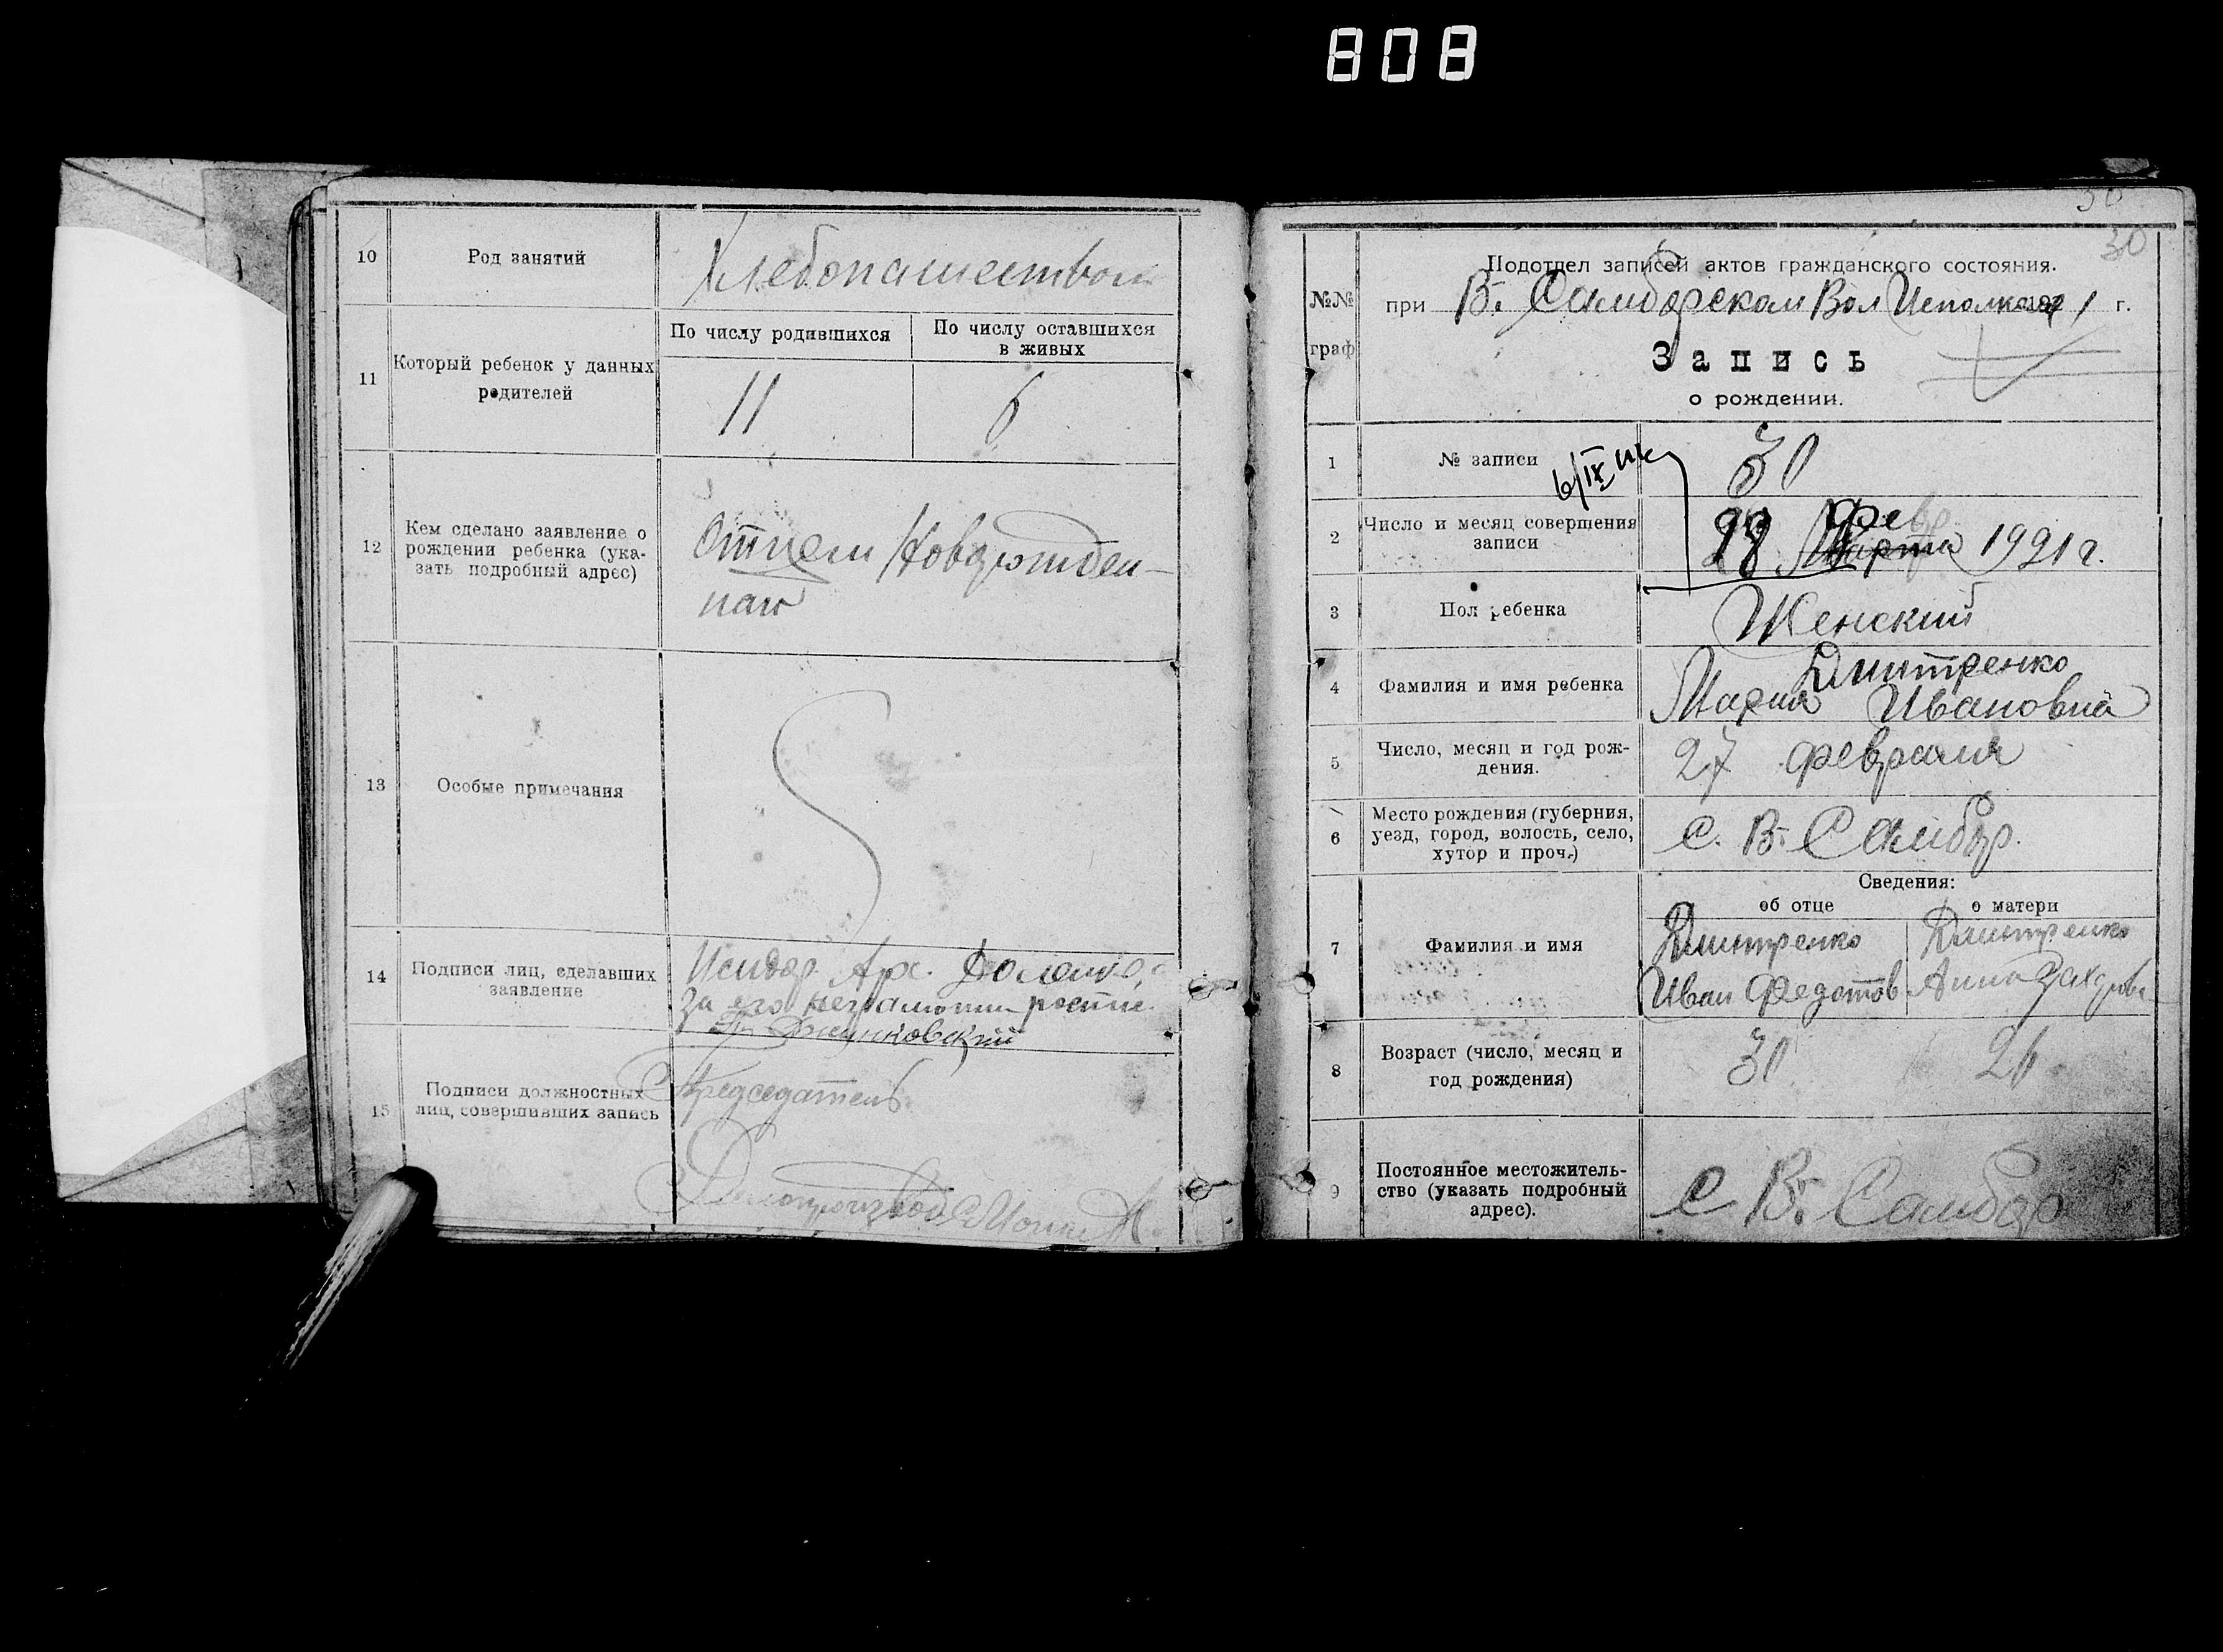 808
10 Род занятий Хлебопашеством
11 Который ребенок у данных
родителей
По числу родившихся
По числу оставшихся
в живых
11 6
12 Кем сделано заявление о
рождении ребенка (ука-
зать подробный адрес)
Отцем Новорожден-
наго
13 Особые примечания
14 Подписи лиц, сделавших
заявление
Исидор Арх.
за его неграмотн.
15 Подписи должностных
лиц, совершивших запись
Председатель
Делопроизвод
30
30
№№
граф
Подотдел записей актов гражданского состояния.
при В. Самборском Вол Исполкоме 1921 г.
Запись
о рождении.
1 № записи 30
6/IX
2 Число и месяц совершения
записи
28 Марта Фев 1921 г.
3 Пол ребенка Женский
4 Фамилия и имя ребенка
Дмитренко
Мария Ивановна
5 Число, месяц и год рож-
дения.
27 февраля
6 Место рождения (губерния,
уезд, город, волость, село,
хутор и проч.)
с. В. Самбор.
Сведения:
об отце о матери
7 Фамилия и имя
Дмитренко Дмитренко
Иван Федотов Анна Захарова
8 Возраст (число, месяц и
год рождения)
30 26
9 Постоянное местожитель-
ство (указать подробный
адрес).
с В. Самбор